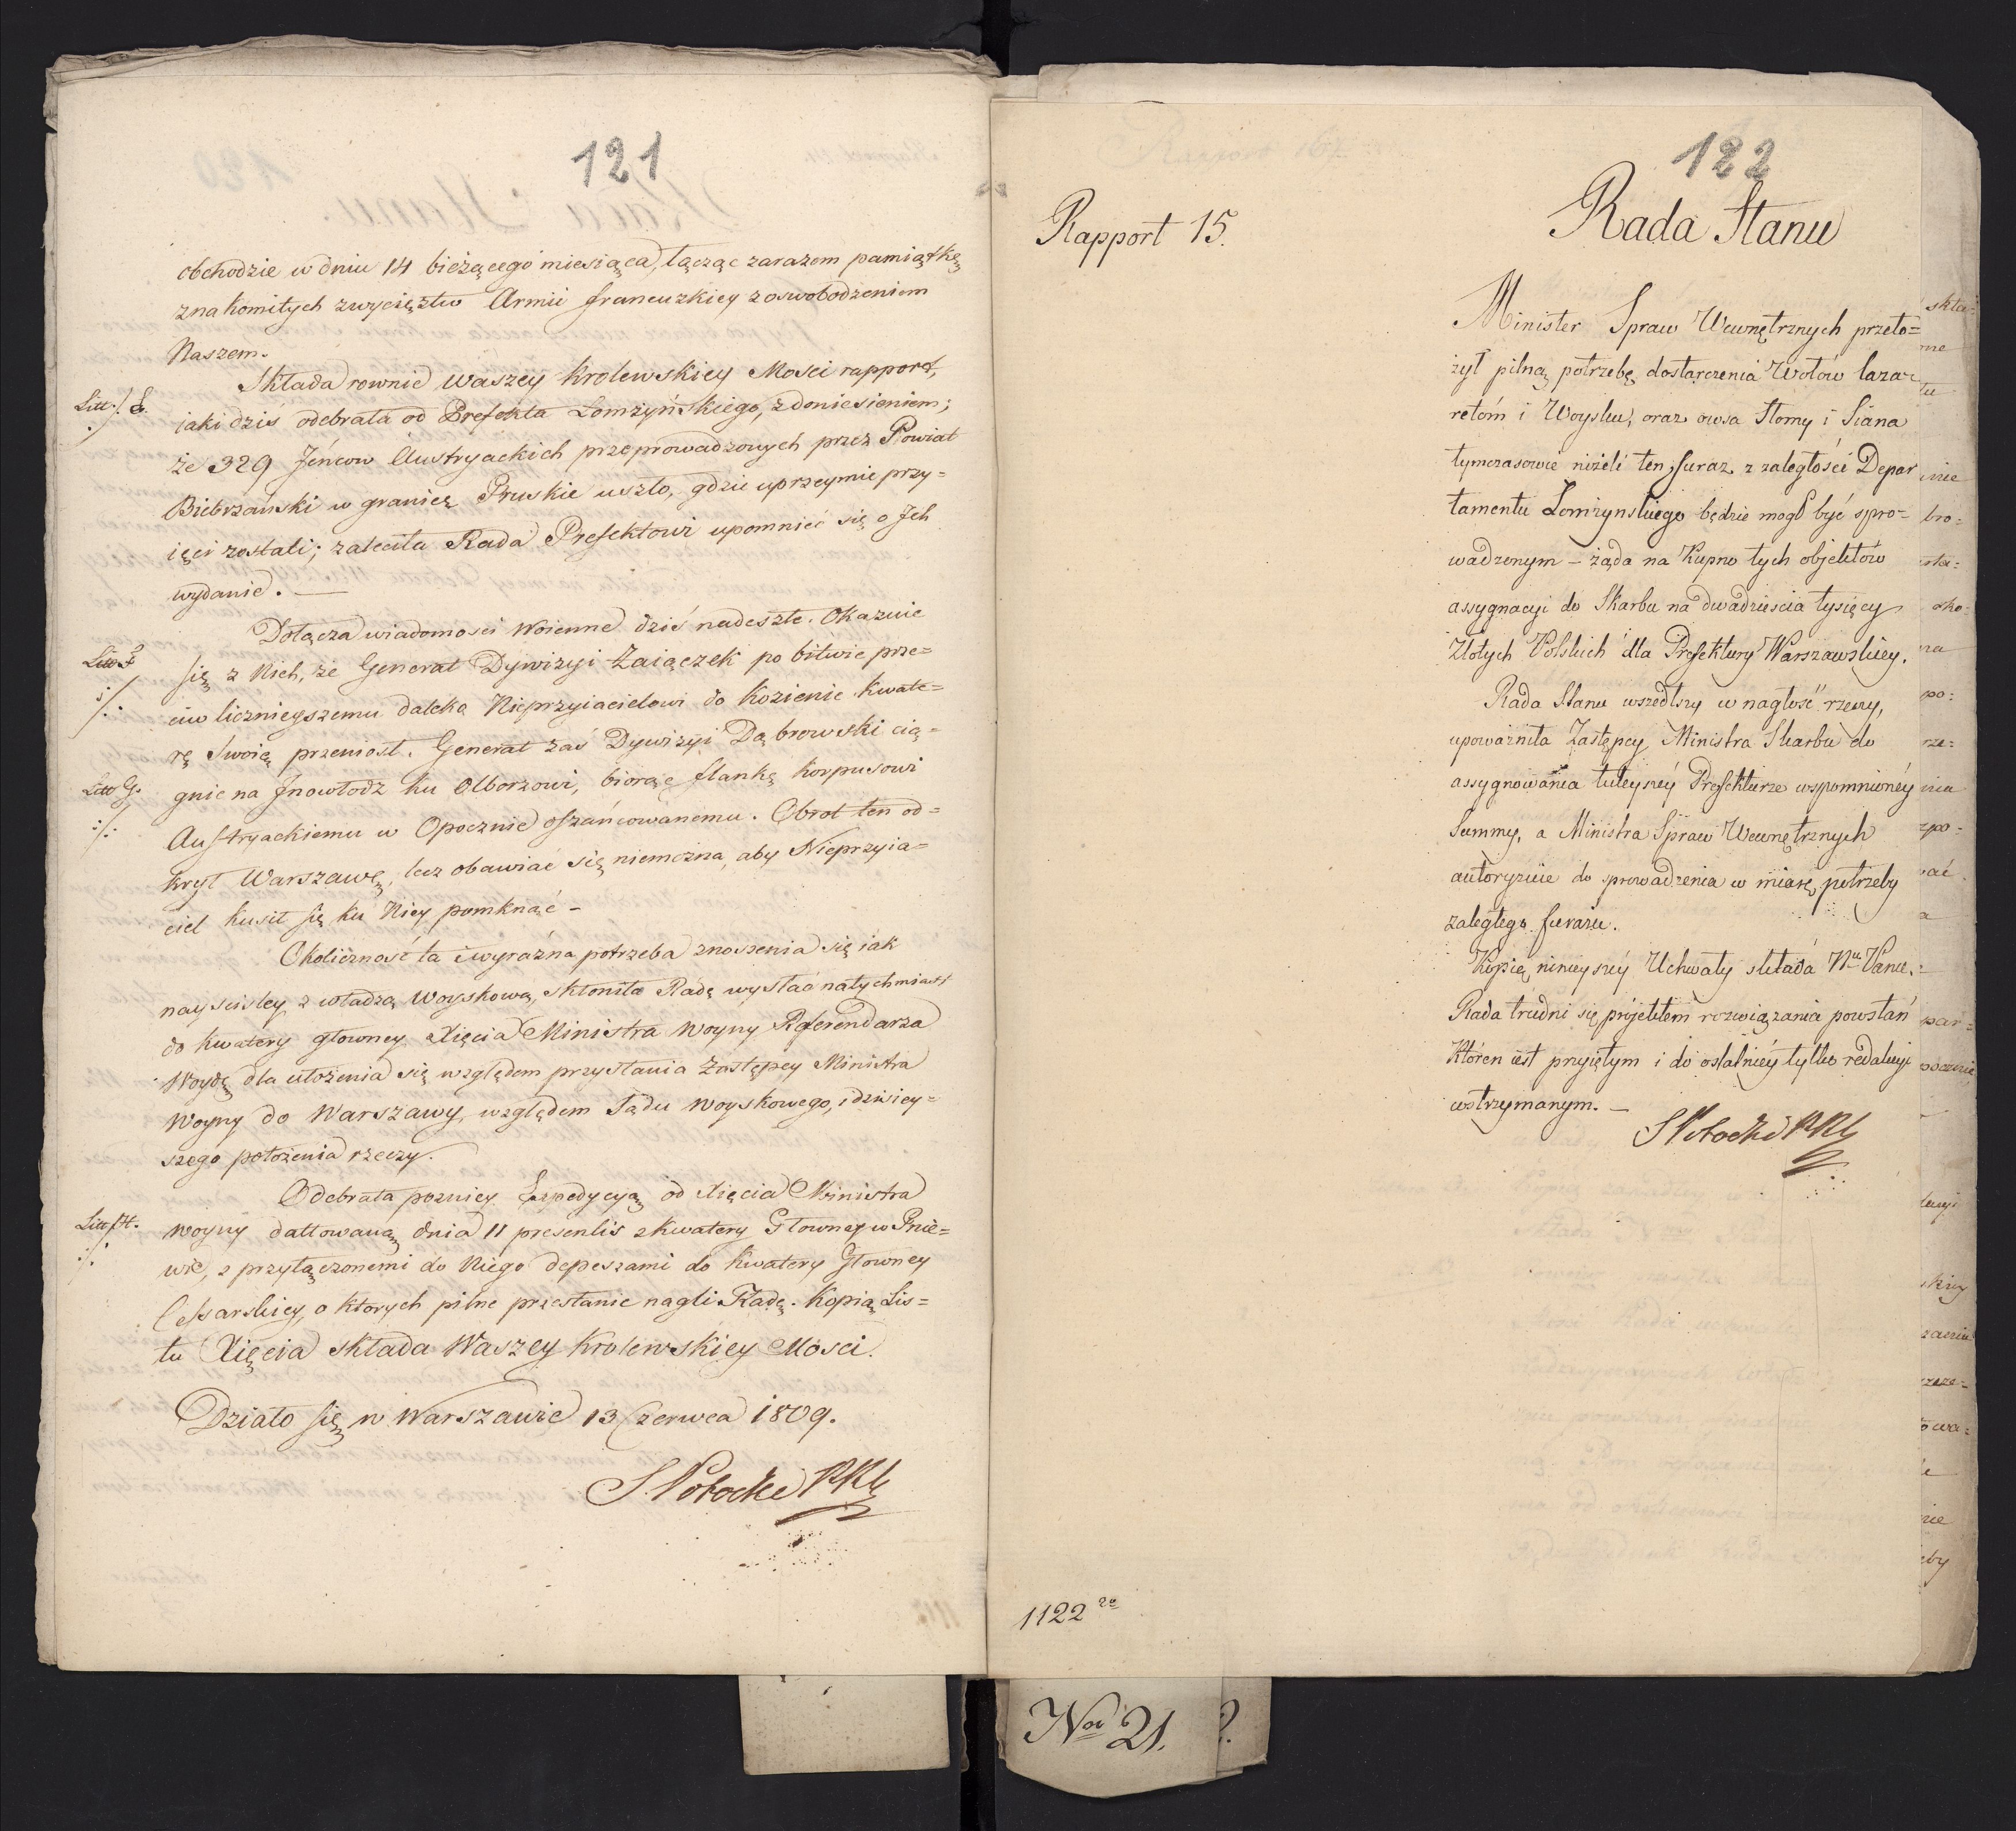 121
obchodzić w dniu 14 bieżącego miesiąca, łącząc zarazem pamiątkę
znakomitych zwycięztw Armii francuzkiey z oswobodzeniem
Naszem.
Składa rownie Waszey Krolewskiey Mosci rapport,
Litt. E.
jaki dziś odebrała od Prefekta Łomżyńskiego, z doniesieniem;
że 329 Jeńcow Austryackich przeprowadzonych przez Powiat
Biebrzański w granicę Pruskie uszło, gdzie uprzeymie przy=
ięci zostali; zaleciła Rada Prefektowi upomnieć się o Jch
wydanie. —
Dołącza wiadomosci woienne dziś nadeszłe. Okazuie
Litt F
się z Nich, że Generał Dywizyi Zaiączek po bitwie prze=
ciw licznieyszemu daleko Nieprzyiacielowi do Kozienic Kwate=
rę Swoię przeniosł. Generał zaś Dywizyi Dąbrowski cią=
Litt G.
gnie na Jnowłodz ku Olborzowi, biorąc flankę korpusowi
Austryackiemu w Opocznie oszańcowanemu. Obrot ten od=
krył Warszawę, lecz obawiać się niemożna, aby Nieprzyia=
ciel kusił się ku Niey pomknąć –
Okoliczność ta i wyraźna potrzeba znoszenia się iak
nayscisley z władzą Woyskową, skłoniła Radę wysłać natychmiast
do Kwatery głowney Xięcia Ministra Woyny Referendarza
Woydę dla ułożenia się względem przysłania Zastępcy Ministra
Woyny do Warszawy, względem Sądu Woyskowego, i dzisiey=
szego położenia rzeczy.
Odebrała pozniey Expedycyą od Xięcia Ministra
Litt H.
Woyny dattowaną dnia 11 presentis z kwatery Głowney w Pnie=
wie, z przyłączonemi do Niego depeszami do Kwatery Głowney
Cesarskiey, o ktorych pilne przesłanie nagli Radę. Kopią Lis=
tu Xięcia składa Waszey Krolewskiey Mosci.
Działo się w Warszawie 13 Czerwca 1809.
S. Potocki PRS
122
Rapport 15.
Rada Stanu
Minister Spraw Wewnętrznych przeło=
żył pilną potrzebę dostarczenia Wołów laza=
retóm i Woysku, oraz owsa Słomy i Siana
tymczasowie niżeli ten furaż z zaległości Depar
tamentu Łomżynskiego będzie mogł być spro=
wadzonym – żąda na Kupno tych objektów
assygnacyi do Skarbu na dwadziescia tysięcy
Złotych Polskich dla Prefektury Warszawskiey.
Rada Stanu wszedłszy w nagłość rzeczy,
upoważniła Zastępcę Ministra Skarbu do
assygnowania tuteyszéy Prefekturze wspomnionéy
Summy, a Ministra Spraw Wewnętrznych
autoryzuie do sprowadzenia w miarę potrzeby
zaległego furażu.
Kopię ninieyszéy Uchwały składa N. Panu.
Rada trudni się projektem rozwiązania powstań
Któren iest przyiętym i do ostatniéy tylko redakcyi
wstrzymanym. –
S Potocki PRS
1122
No 21.